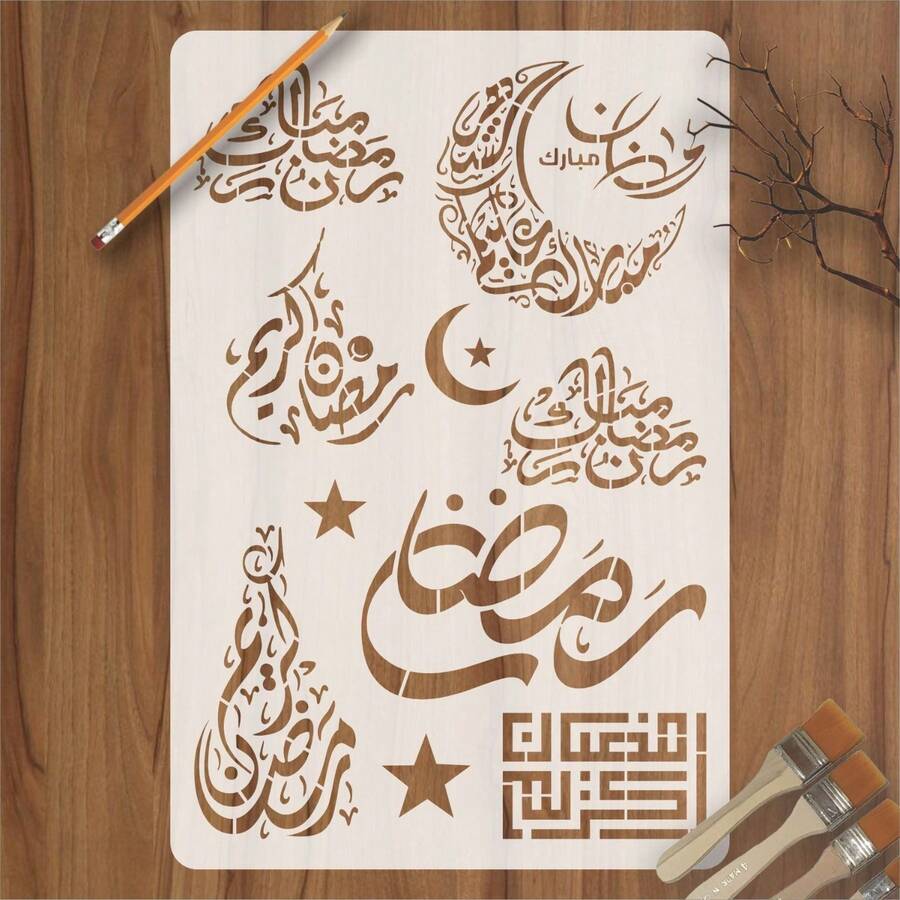 رمضان مبارك
رمضان مبارك
مبارك عليكم الشهر
رمضان كريم
رمضان مبارك
رمضان
رمضان كريم
رمضان كريم